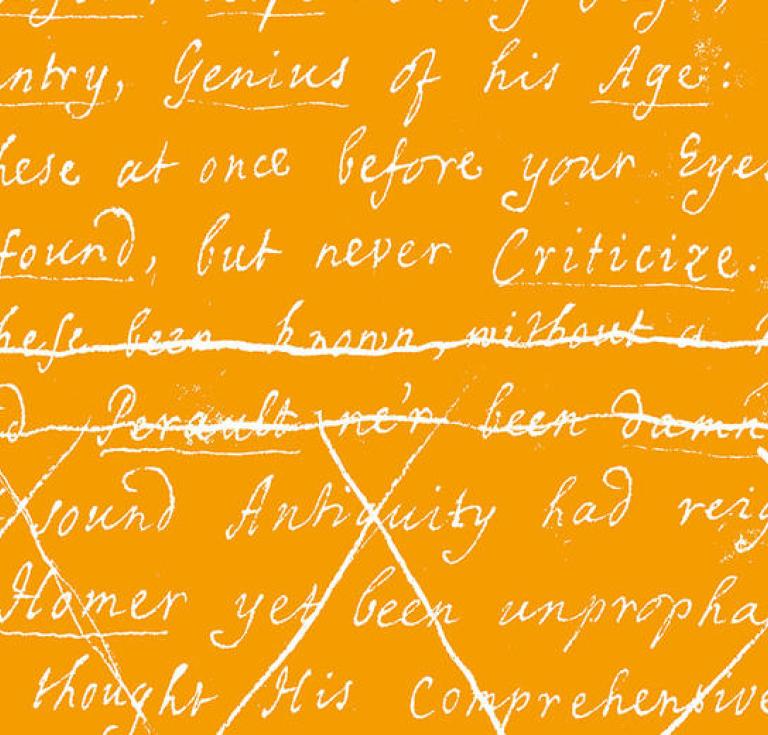 ntry, Genius of his Age:
hese at once before your Eyes
found, but never Criticize.
hese been known, without a
Perault ne'r been damn
sound Antiquity had reig
Homer yet been unpropha
thought His Comprehensive